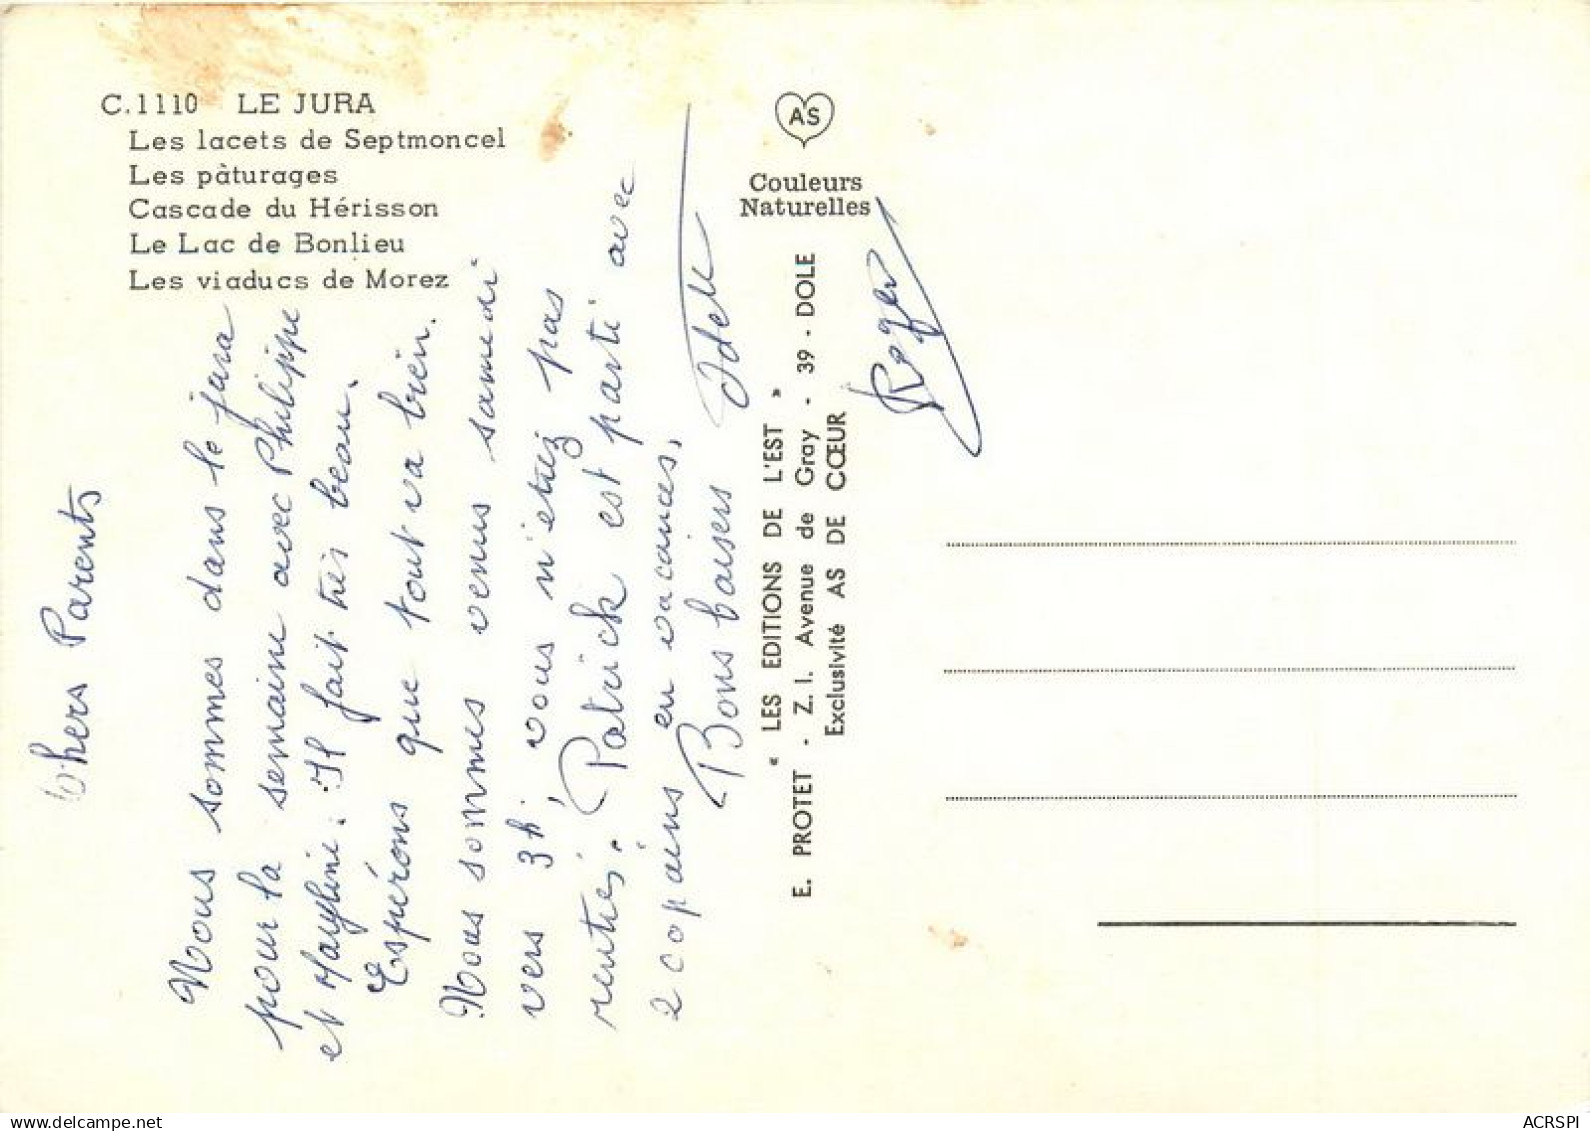 C.1110 LE JURA
Les lacets de Septmoncel
Les pâturages
Cascade du Hérisson
Le Lac de Bonlieu
Les viaducs de Morez
AS
Couleurs
Naturelles
« LES EDITIONS DE L'EST »
E. PROTET - Z. I. Avenue de Gray - 39 - DOLE
Exclusivité AS DE CŒUR
Chers Parents
Nous sommes dans le jura
pour la semaine avec Philippe
et Maryline. Il fait très beau.
Espérons que tout va bien.
Nous sommes venus samedi
vers 3h, vous n'etiez pas
rentrés. Patrick est parti avec
2 copains en vacances,
Bons baisers
Roger
www.delcampe.net
ACRSPI